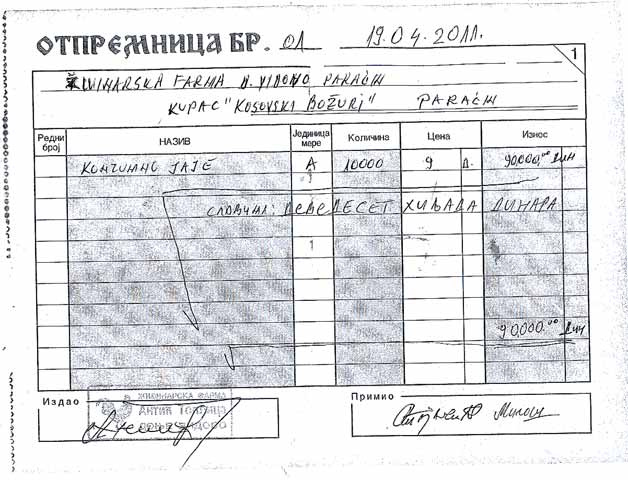 ОТПРЕМНИЦА БР. 01 19.04.2011.
1
ŽIVINARSKA FARMA D. VIDOVO PARAĆIN
KUPAC "KOSOVSKI BOŽURI" PARAĆIN
Редни број НАЗИВ Јединица мере Количина Цена Износ
КОНЗУМНО ЈАЈЕ А 10000 9 Д. 90.000,00 ДИН
СЛОВИМА: ДЕВЕДЕСЕТ ХИЉАДА ДИНАРА
90.000,00 ДИН
Издао
Примио
ЖИВИНАРСКА ФАРМА
АНТИЋ